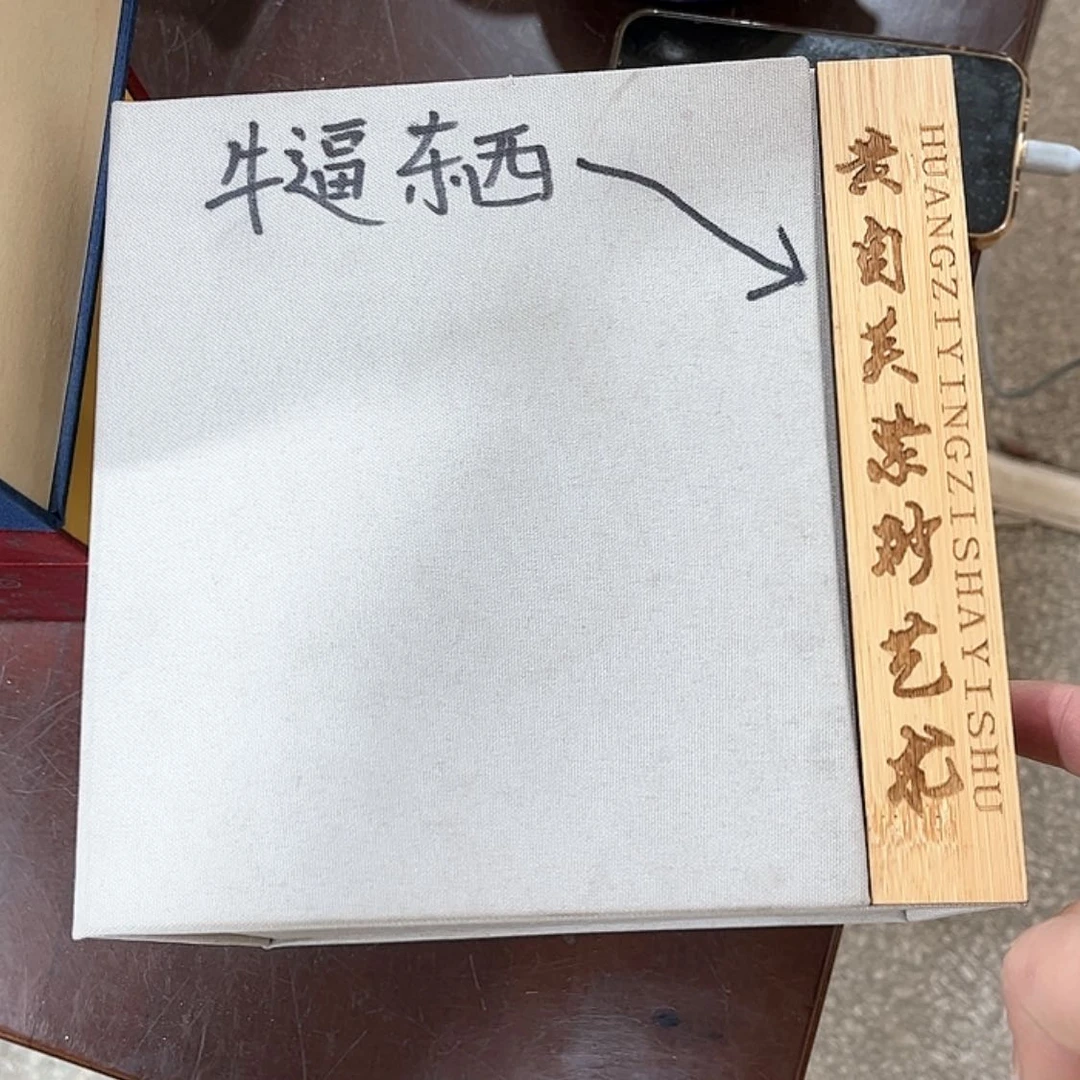 牛逼 东西
黄自英紫砂艺术
HUANGZIYINGZISHAYISHU